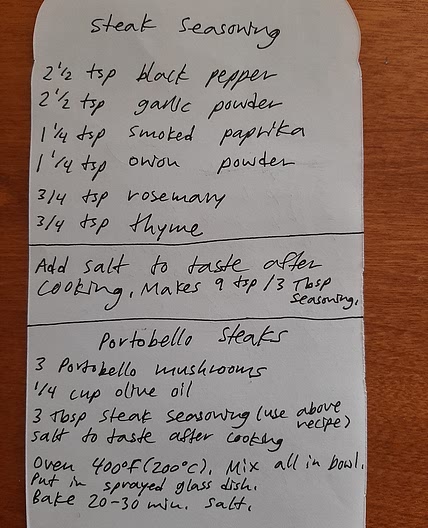 Steak Seasoning
2 1/2 tsp black pepper
2 1/2 tsp garlic powder
1 1/4 tsp smoked paprika
1 1/4 tsp onion powder
3/4 tsp rosemary
3/4 tsp thyme
Add salt to taste after
cooking. Makes 9 tsp / 3 Tbsp
seasoning.
Portobello Steaks
3 Portobello mushrooms
1/4 cup olive oil
3 Tbsp steak seasoning (use above
recipe)
salt to taste after cooking
Oven 400°F (200°C). Mix all in bowl.
Put in sprayed glass dish.
Bake 20-30 min. Salt.